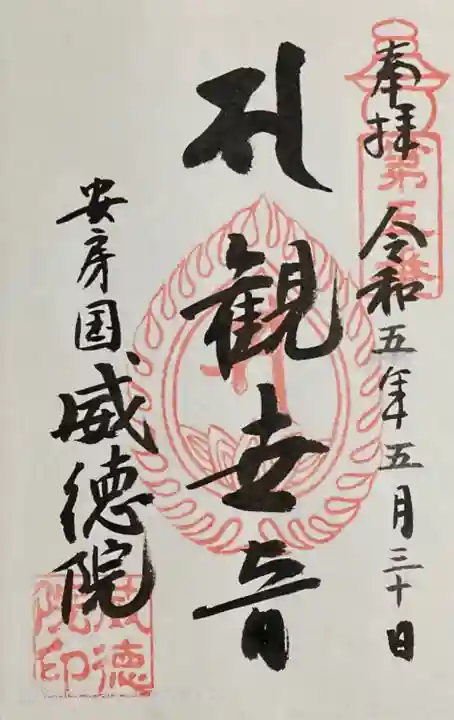 奉拝
令和五年五月三十日
札観世音
安房国
威徳院
威徳
院印